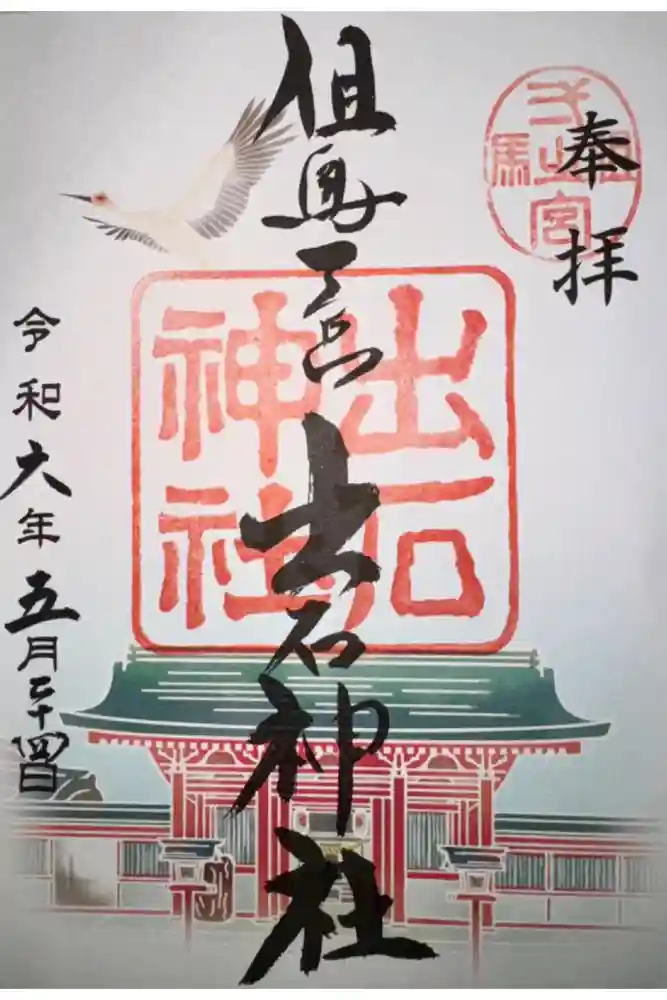 奉拝
但馬
之宮
但馬一宮
出石神社
出石
神社
令和六年五月二十四日